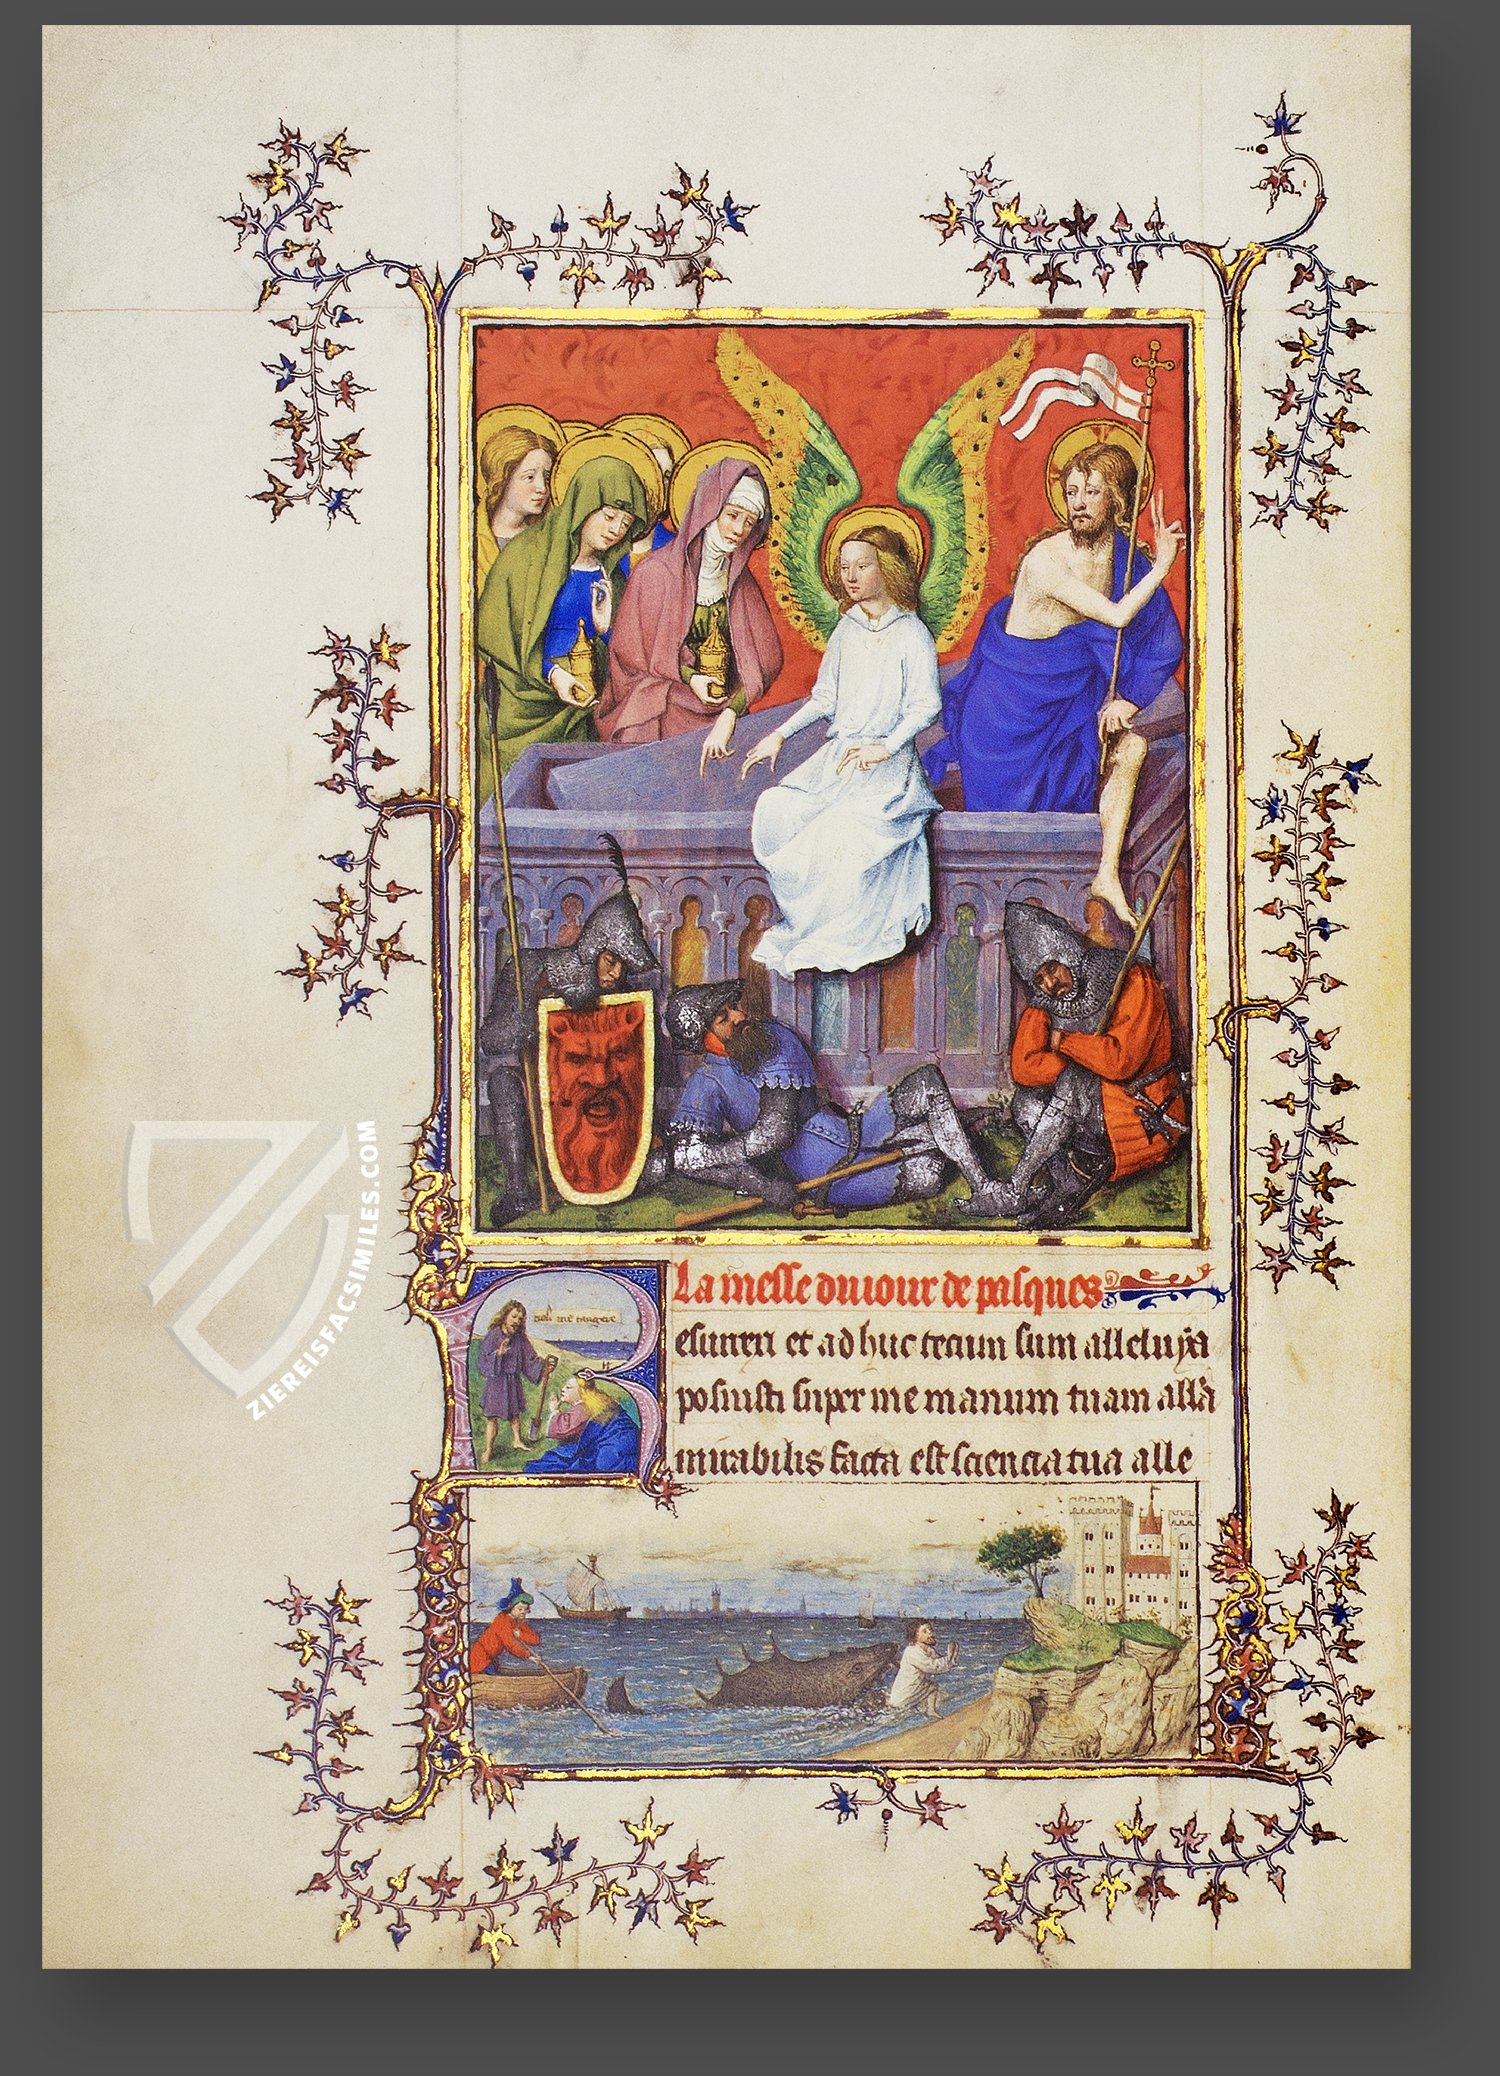 La messe du iour de pasques
noli me tangere
R
esurrexi et adhuc tecum sum alleluya
posuisti super me manum tuam alla
mirabilis facta est sciencia tua alle
ZIEREISFACSIMILES.COM